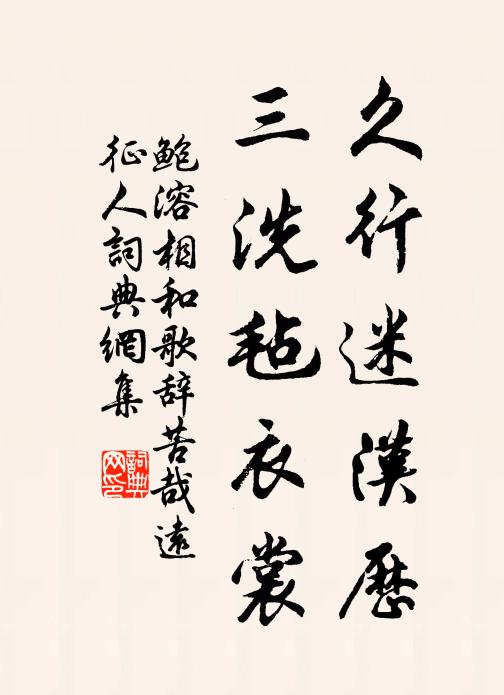 久行迷漢歷
三洗毡衣裳
鲍溶相和歌辞苦哉遠
征人詞典網集
詞典
网印